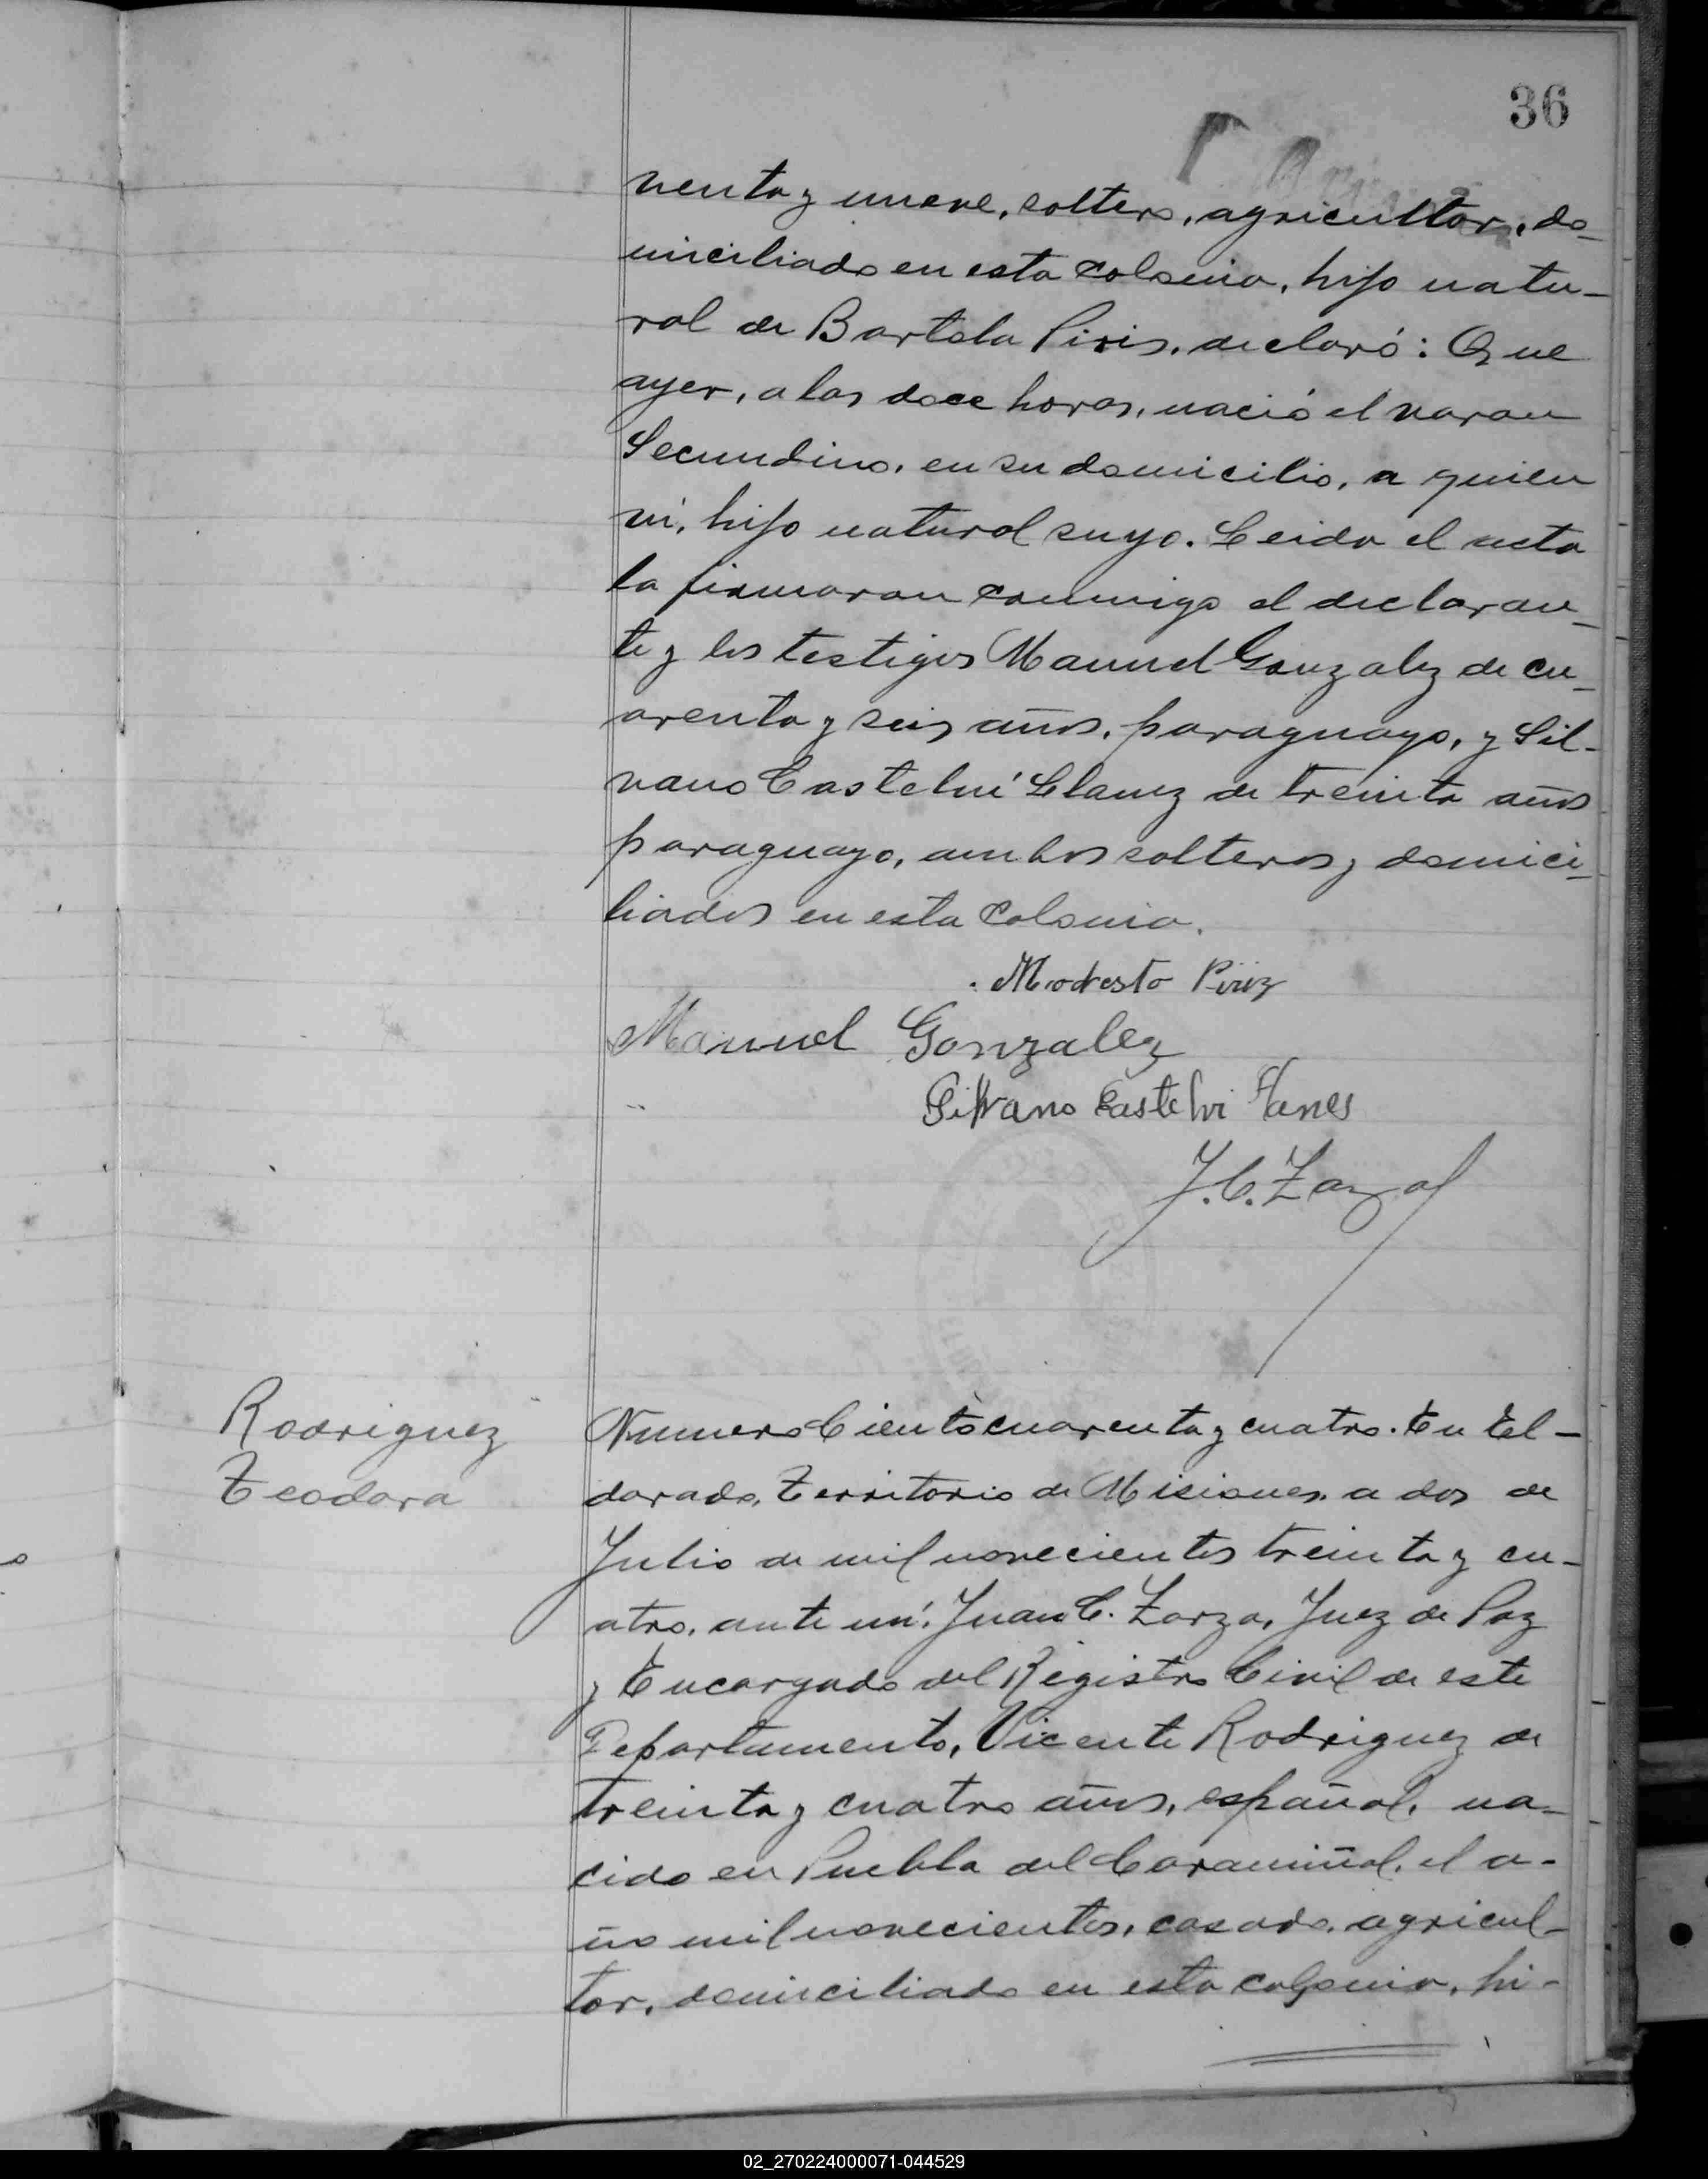 36
venta y nueve, soltero, agricultor, do-
miciliado en esta colonia, hijo natu-
ral de Bartola Piris, declaró: Que
ayer, a las doce horas, nació el varon
Secundino, en su domicilio, a quien
vi, hijo natural suyo. Leida el acta
la firmaron conmigo el declaran-
te y los testigos Manuel Gonzalez de cu-
arenta y seis años, paraguayo, y Sil-
vano Castelví Llanez de treinta años
paraguayo, ambos solteros y domici-
liados en esta colonia.
Modesto Piriz
Manuel Gonzalez
Silvano Castelvi Llanes
J. C. Zarza
Rodriguez
Teodora
Numero Ciento cuarenta y cuatro. En El-
dorado, Territorio de Misiones, a dos de
Julio de mil novecientos treinta y cu-
atro, ante mí, Juan C. Zarza, Juez de Paz
y Encargado del Registro Civil de este
Departamento, Vicente Rodriguez de
treinta y cuatro años, español, na-
cido en Puebla del Caramiñal, el a-
ño mil novecientos, casado, agricul-
tor, domiciliado en esta colonia, hi-
02_270224000071-044529